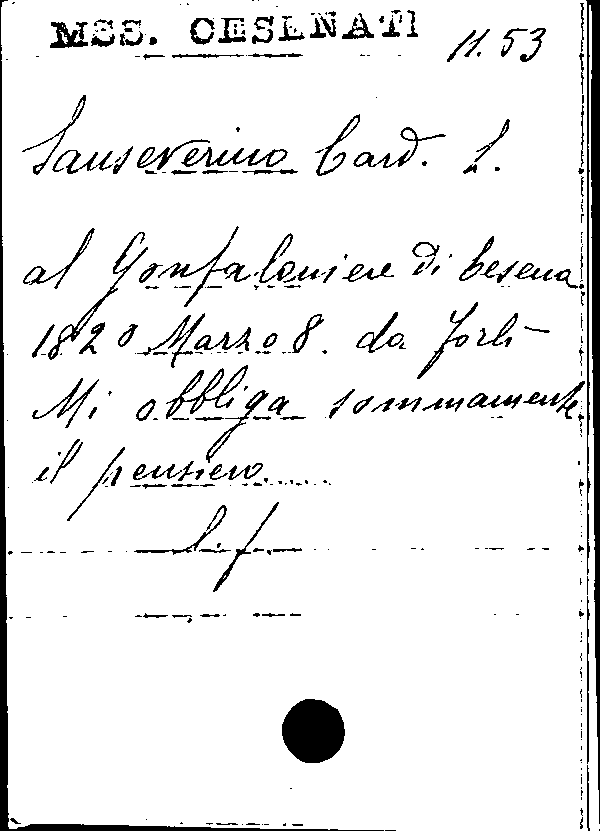 MSS. CESENATI
11.53
Sanseverino Card. L.
al Gonfaloniere di Cesena
1820 Marzo 8. da Forlì
Mi obbliga sommamente
il pensiero.....
l. f.